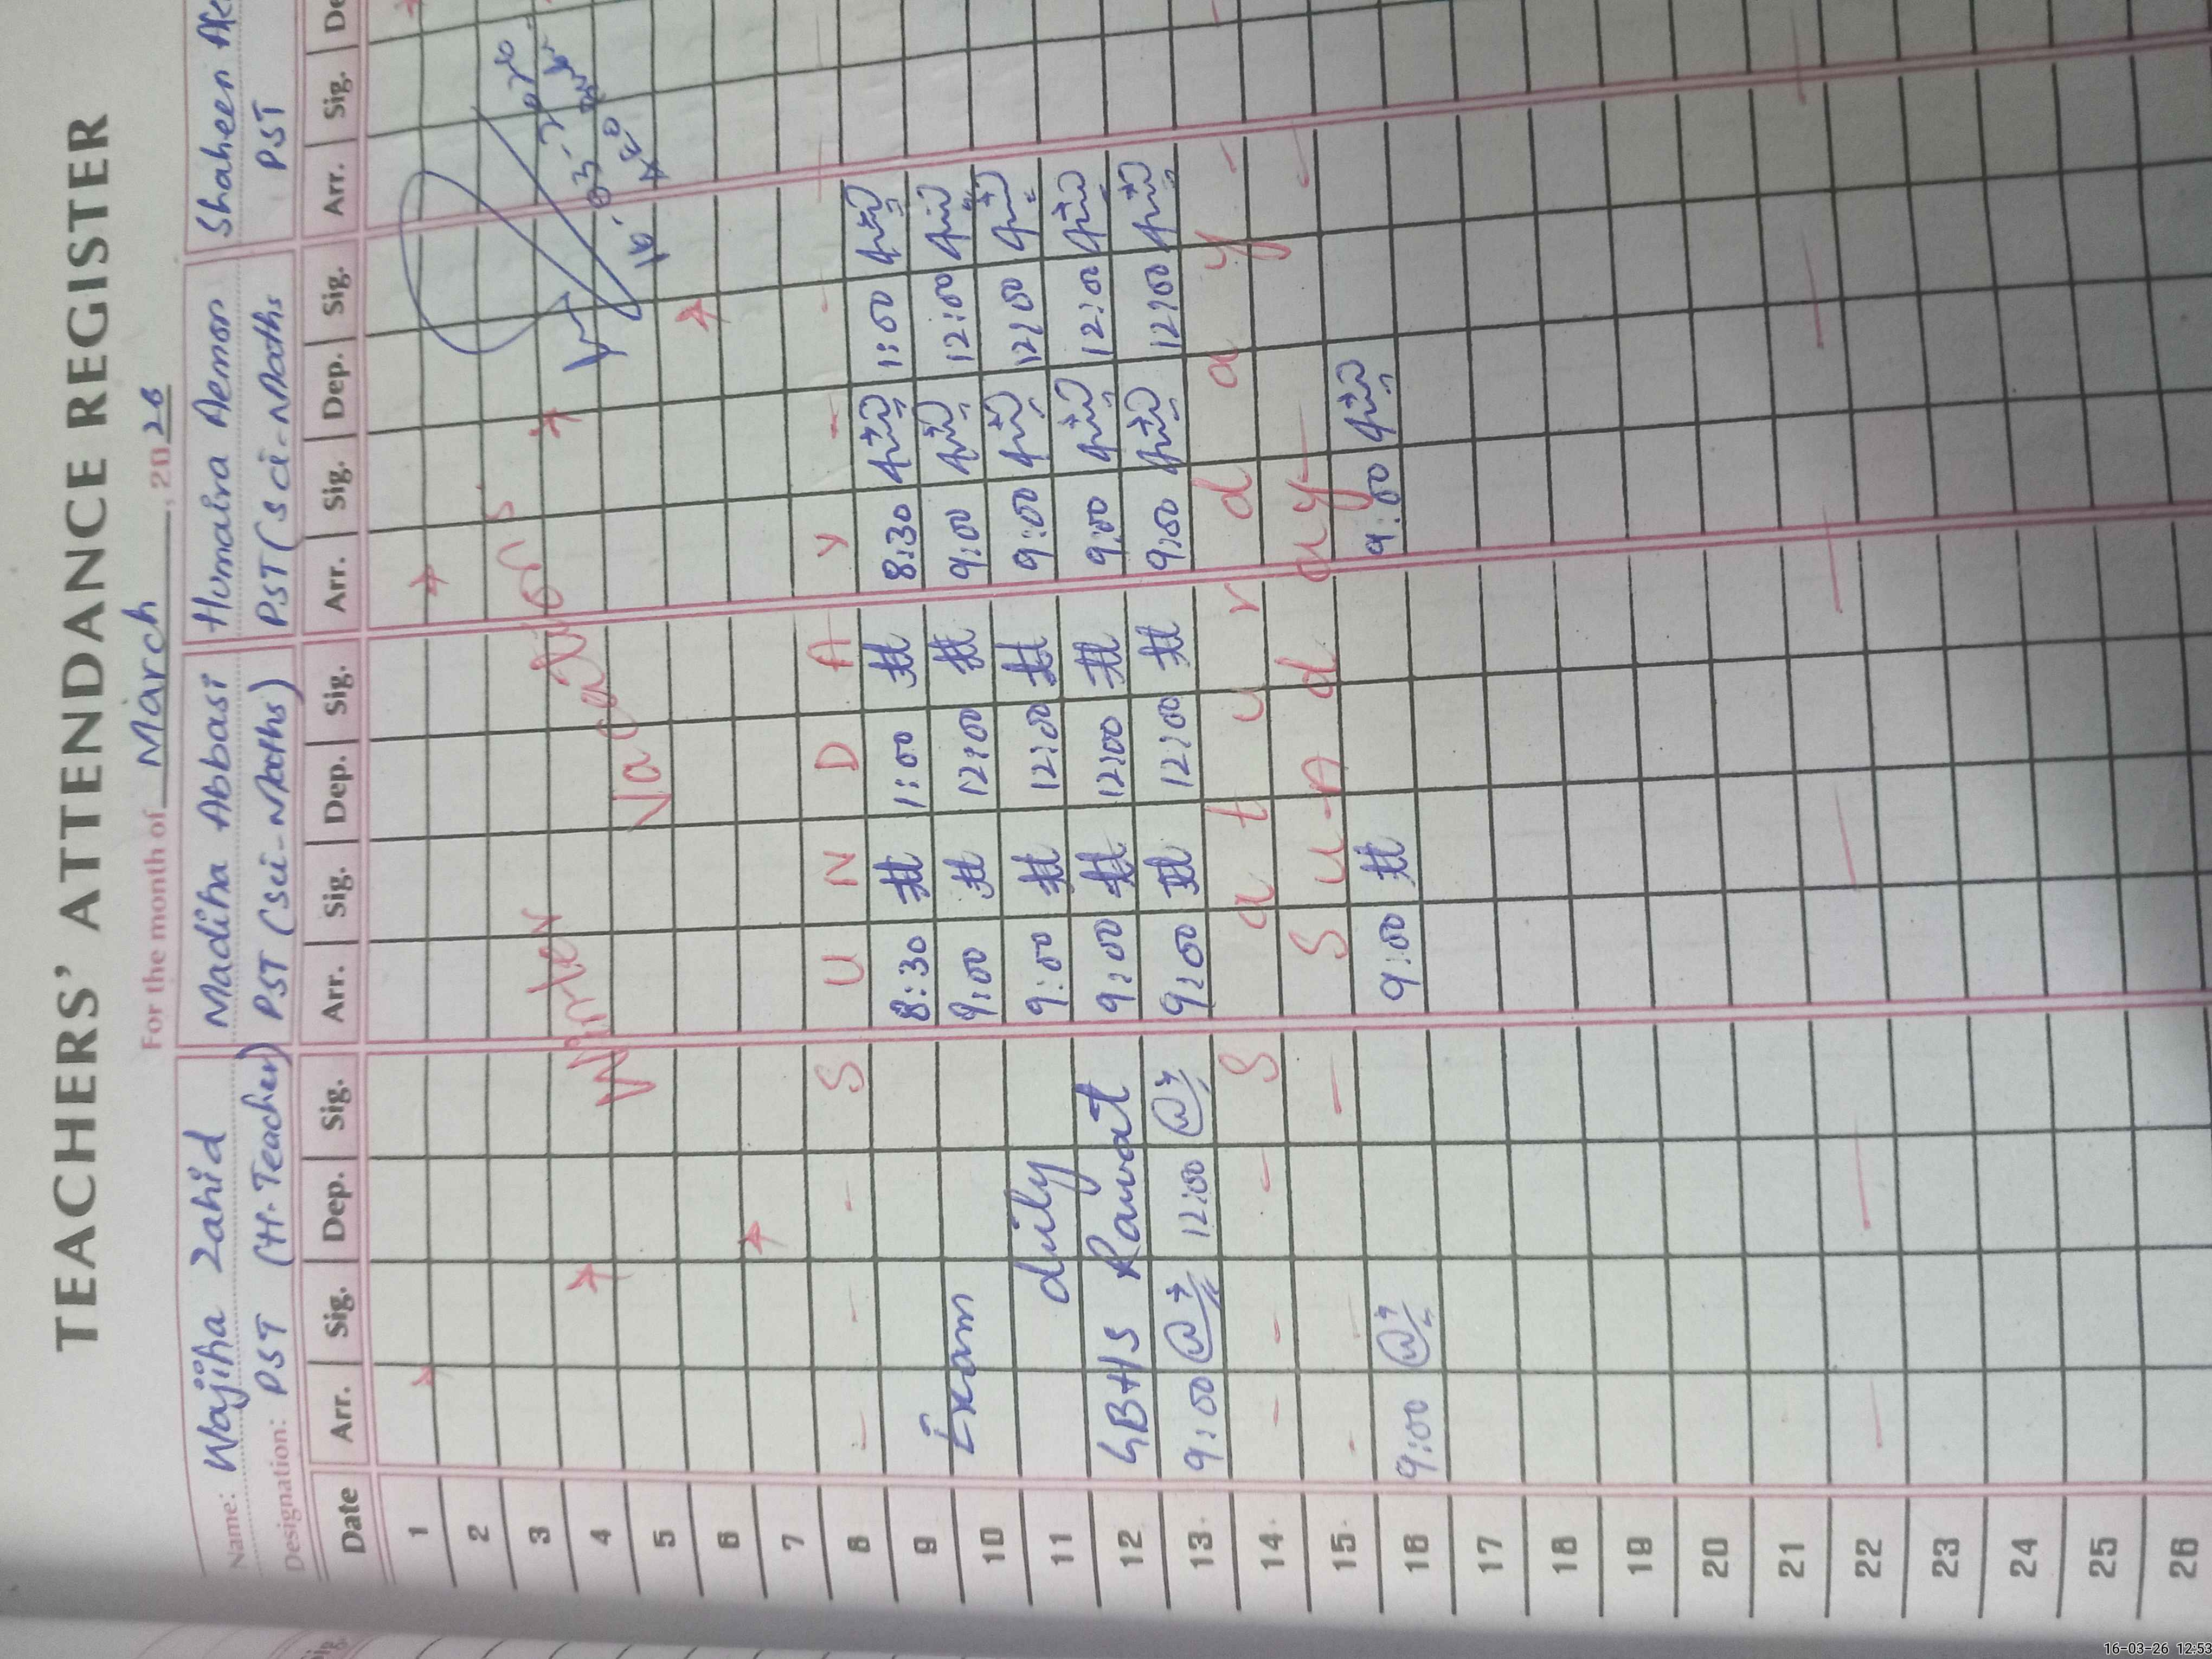 TEACHERS' ATTENDANCE REGISTER
For the month of March, 2026
Name: Wajiha Zahid Madiha Abbasi Humaira Memon Shaheen
Designation: PST (H-Teacher) PST (Sci-Maths) PST (Sci-Maths) PST
Date Arr. Sig. Dep. Sig. Arr. Sig. Dep. Sig. Arr. Sig. Dep. Sig. Arr. Sig.
1
2
3
4 Winter Vacations
5
6
7
8 S U N D A Y
9 8:30 1:00 8:30 1:00
10 Exam 9:00 12:00 9:00 12:00
11 duty 9:00 12:00 9:00 12:00
12 GBHS Rawat 9:00 12:00 9:00 12:00
13 9:00 12:00 9:00 12:00 9:00 12:00
14 S a t u r d a y
15 S u n d a y
16 9:00 9:00 9:00
17
18
19
20
21
22
23
24
25
26
16-03-26 12:53